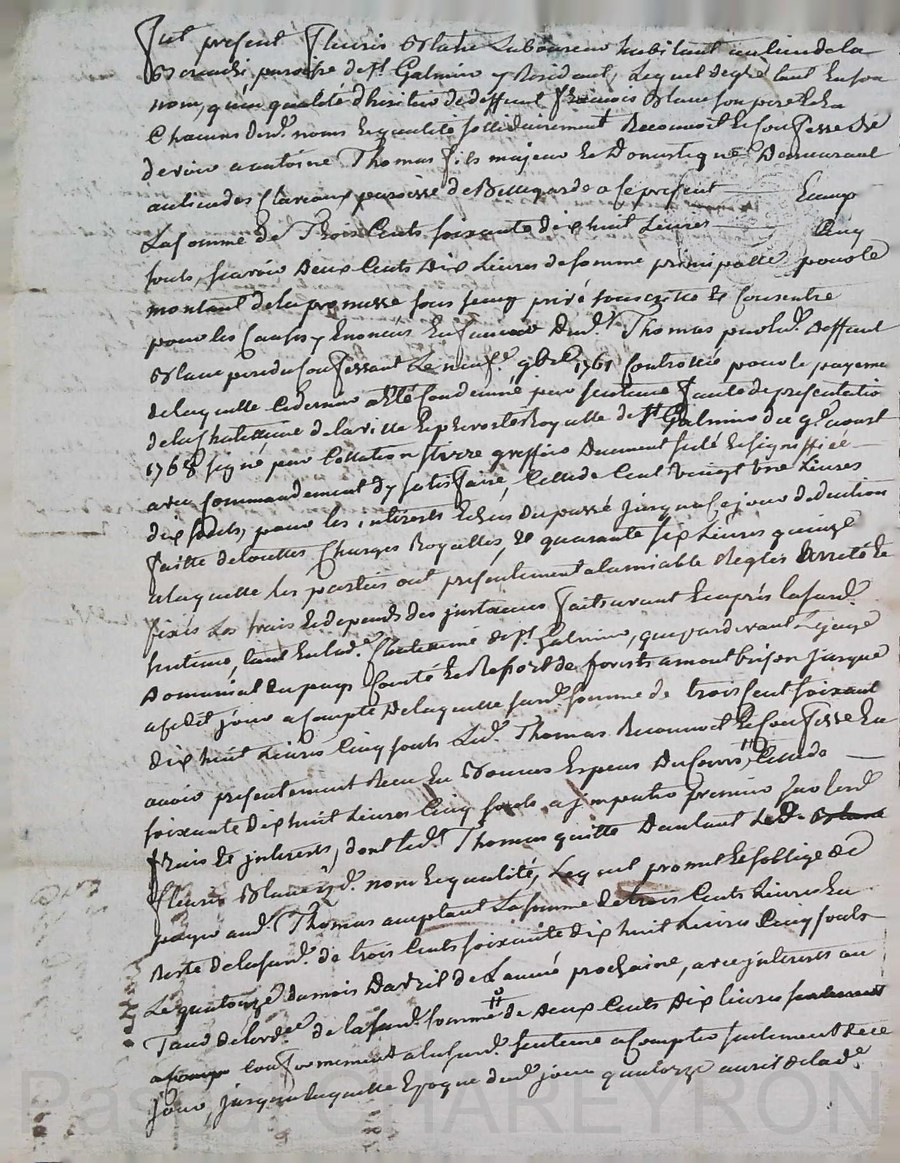 Fut present Fleuris Blanc Laboureur habitant au lieu de la
paroisse de St Galmier y Residant, Lequel de gré tant en son
nom, qu'en qualité d'heritier de deffunt François Blanc son pere et en
Chacun desd. noms et qualité sollidairement Reconnoit et Confesse
devoir a antoine Thomas fils majeur et Domestique Demeurant
au lieu des paroisse de Bellegarde a ce present
La somme de Trois Cents soixante dix huit Livres Cinq
souls, scavoir Deux Cents Dix Livres de somme principalle pour le
montant de la promesse sous seing privé souscritte et Consentie
pour les Causes y Enoncées En faveur dud. Thomas par led. deffunt
Blanc pere du Confessant Le neuf 9bre 1761 Controllée pour le payeme
de laquelle ce dernier a Eté Condemné par sentence faute de presentatio
de la Chatellenie de la ville et prevosté Royalle de St Galmier du 9e aoust
1768 signé par Collation greffier Duement scelé et signiffiée
avec Commandement d'y satisfaire, Celle de Cent vingt une Livres
dix souls, pour les interests Echus du passé jusqu'a ce jour deduction
faitte de touttes Charges Royalles, et quarante six Livres quinze
a laquelle les parties ont presentement a l'amiable Reglés arreté et
fixés Les frais et depends des instances faits avant et après la susd.
sentence, tant en lad. Chatellenie de St Galmier, que pardevant Le juge
Domanial du pays Comté et Ressort de forests a montbrison jusque
a cedit jour a Compte De laquelle susd. somme de trois Cent soixante
dix huit Livres Cinq souls Led. Thomas Reconnoit et Confesse En
avoir presentement Receu En Bonnes Especes Du Cours, Celle de
soixante dix huit Livres Cinq souls a imputer premier sur lesd.
frais et interests, dont led. Thomas quitte D'autant Led. Blanc
Fleuris Blanc esd. nom et qualité, Lequel promet et s'oblige de
payer aud. Thomas Lacceptant La somme de trois Cents Livres En
Reste de la susd. de trois Cents soixante dix huit Livres Cinq souls
Le quatorze du mois D'avril de L'année prochaine, avec interests au
Taux de L'ordce de la susd. somme de Deux Cents Dix livres seulement
a Compter Conformement a la susd. sentence a Compter seulement de ce
jour, jusqu'a laquelle Epoque dud. jour quatorze avril de lad.
Pascal CHAREYRON